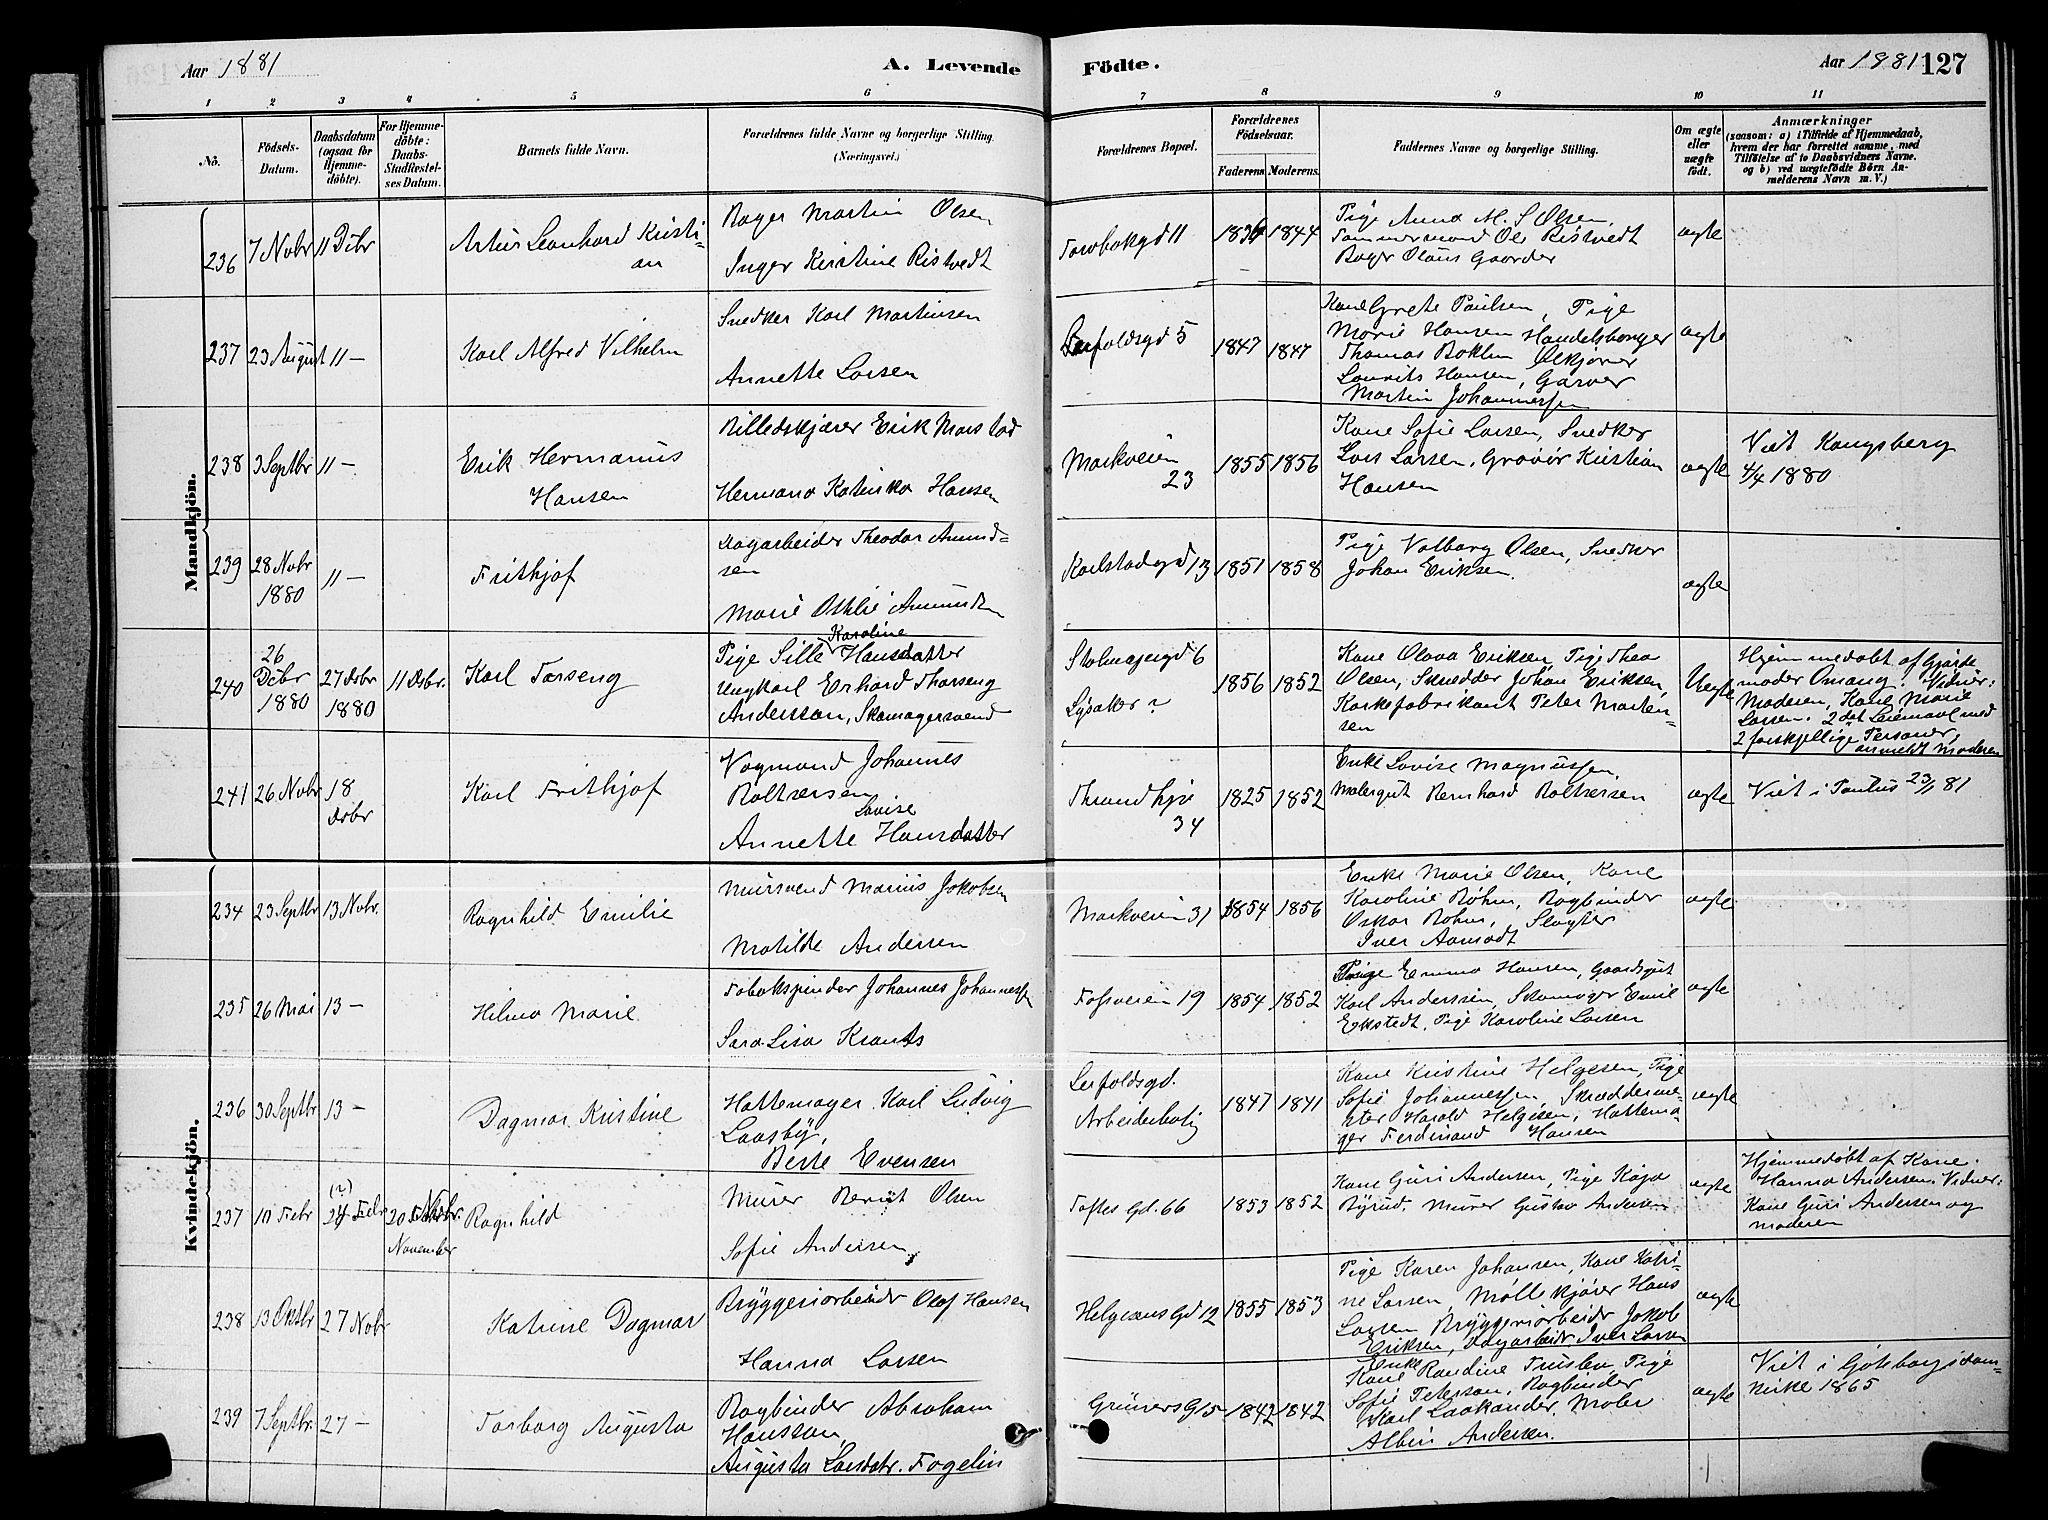 Aar 1881
A. Levende
Födte.
Aar 1881
127
1 2 3 4 5 6 7 8 9 10 11
No.
Födsels-
Datum.
Daabsdatum
(ogsaa for
Hjemme-
döbte).
For Hjemme-
döbte:
Daabs-
Stadfæstel-
ses Datum.
Barnets fulde Navn.
Forældrenes fulde Navne og borgerlige Stilling.
(Næringsvei.)
Forældrenes Bopæl.
Forældrenes
Födselsaar.
Faderens
Moderens.
Faddernes Navne og borgerlige Stilling.
Om ægte
eller
uægte
født.
Anmærkninger
(saasom: a) i Tilfælde af Hjemmedaab,
hvem der har forrettet samme, med
Tilføielse af to Daabsvidners Navne.
og b) ved uægtefødte Börn An-
melderens Navn m. V.)
Mandkjön.
236 7 Nobr 11 Dcbr
Artur Leonhard Kristi-
an
Bager Martin Olsen
Inger Kirstine Ristvedt
Torvbakgd 11
1836 1844
Pige Anna M. S Olsen,
Tømmermand Ole Ristvedt
Bager Olaus Gaarder
ægte
237 23 August 11 —
Karl Alfred Vilhelm
Snedker Karl Martinsen
Annette Larsen
Leirfaldsgd 5
1847 1847
Kone Grete Paulsen, Pige
Marie Hansen Handelsborger
Thomas Boklun Ølkjører
Laurits Hansen, Garver
Martin Johannessen
ægte
238 3 Septbr 11 —
Erik Hermanius
Hansen
Billedskjærer Erik Marstad
Hermana Katinka Hansen
Markveien
23
1855 1856
Kone Sofie Larsen, Snedker
Lars Larsen, Gravør Kristian
Hansen
ægte
Viet Kongsberg
4/4 1880
239 28 Nobr
1880
11 —
Frithjof
Dagarbeider Theodor Amund-
sen
Marie Othlie Amundsen
Karlstadgd 13
1851 1858
Pige Valborg Olsen, Snedker
Johan Eriksen.
ægte
240 26
Dcbr
1880
27 Dcbr
1880
11 Dcbr.
Karl Torseng
Karoline
Pige Sille Hansdatter
Ungkarl Erhard Tharseng
Andersson, Skomagersvend
Stolmagergd 6
Lysaker ?
1856 1852
Kone Olava Eriksen, Pige Thea
Olsen, Skrædder Johan Eriksen,
Korkefabrikant Peter Morten-
sen
Uegte
Hjemmedøbt af Gjorde-
moder Omang. Vidner:
Moderen, Kone Marie
Larsen. 2det Leiermaal med
2 forskjellige Personer,
anmeldt Moderen
241 26 Nobr 18
Dcbr
Karl Frithjof
Vogmand Johannes
Baltzersen
Lovise
Annette Hansdatter
Throndhjv
34
1825 1852
Enke Lovise Magnussen,
Malergut Bernhard Baltzersen
ægte
Viet i Paulus 23/1 81
Kvindekjön.
234 23 Septbr 13 Nobr.
Ragnhild Emilie
Mursvend Marius Jakobsen
Matilde Andersen
Markveien 31
1854 1856
Enke Marie Olsen, Kone
Karoline Bøhn, Bogbinder
Oskar Bøhn, Slagter
Iver Aamodt
ægte
235 26 Mai 13 —
Hilma Marie
Tobakspinder Johannes Johannessen
Sara Lisa Krants
Fossveien 19
1854 1852
Pige Emma Hansen, Gaardsgut
Karl Anderssen, Skomager Emil
Ekstedt, Pige Karoline Larsen
ægte
236 30 Septbr 13 —
Dagmar Kristine
Hattemager Karl Ludvig
Laasby,
Berte Evensen
Leirfaldsgd.
Arbeiderbolig
1847 1841
Kone Kristine Helgesen, Pige
Sofie Johannessen, Skræddermes-
ter Harald Helgesen, Hattema-
ger Ferdinand Hansen
ægte
237 10 Febr (?)
24 Febr 20 Nobr.
November
Ragnhild
Murer Bernt Olsen
Sofie Andersen
Toftes Gd. 66
1853 1852
Kone Guri Andersen, Pige Kaja
Byrud, Murer Gustav Andersen
ægte
Hjemmedøbt af Kone
Hanna Andersen. Vidner:
Kone Guri Andersen og
moderen
238 13 Oktbr 27 Nobr
Katrine Dagmar
Bryggeriarbeider Olaf Hansen
Hanna Larsen
Helgesens Gd 12
1855 1853
Pige Karen Johansen, Kone Katri-
ne Larsen, Møllekjører Hans
Larsen Bryggeriarbeider Jakob
Eriksen, Dagarbeider Iver Larsen
ægte
239 7 Septbr. 27 —
Torborg Augusta
Bogbinder Abraham
Hansson,
Augusta Larsdatr. Fogelin
Grüners G 15
1842 1842
Enke
Kone Randine Truslew, Pige
Sofie Peterson, Bogbinder
Karl Laakander, Maler
Albin Andersen.
ægte
Viet i Göteborgs dom-
kirke 1865